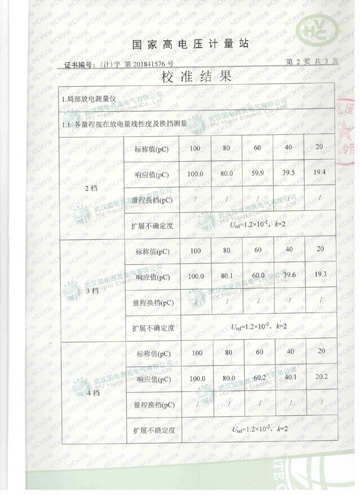 国家高电压计量站
证书编号：（计）字 第 201841576 号 第 2 页 共 3 页
校准结果
1.局部放电测量仪
1.1 各量程视在放电量线性度及换挡测量
2 档
标称值(pC) 100 80 60 40 20
响应值(pC) 100.0 80.0 59.9 39.5 19.4
量程换档(pC) / / / / /
扩展不确定度 Urel=1.2×10-2，k=2
3 档
标称值(pC) 100 80 60 40 20
响应值(pC) 100.0 80.1 60.0 39.6 19.3
量程换档(pC) / / / / /
扩展不确定度 Urel=1.2×10-2，k=2
4 档
标称值(pC) 100 80 60 40 20
响应值(pC) 100.0 80.0 60.2 40.1 20.2
量程换档(pC) / / / / /
扩展不确定度 Urel=1.2×10-2，k=2